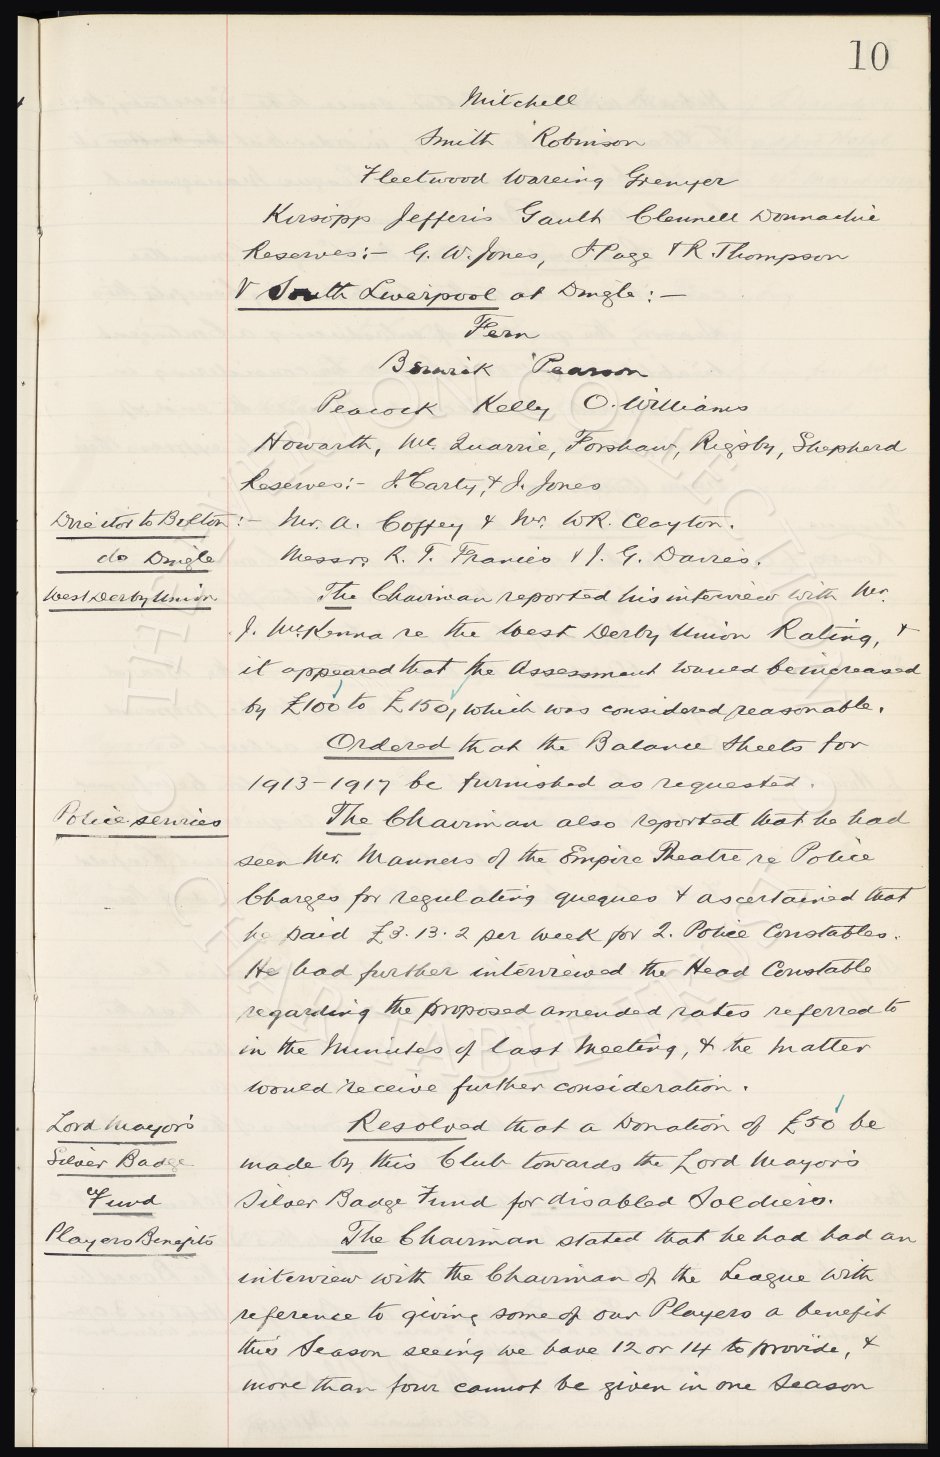 10
Mitchell
Smith Robinson
Fleetwood Wareing Grenyer
Kirsopp Jefferis Gault Clennell Donnachie
Reserves:- G. W. Jones, J Page & R. Thompson
V South Liverpool at Dingle:-
Fern
Berwick Pearson
Peacock Kelly O. Williams
Howarth, Mc. Quarrie, Forshaw, Rigsby, Shepherd
Reserves:- J. Carty, & J. Jones
Director to Bolton:- Mr. A. Coffey & Mr. W R. Clayton.
do Dingle Messrs R. T. Francis & J. G. Davies.
West Derby Union The Chairman reported his interview with Mr.
J. McKenna re the West Derby Union Rating, &
it appeared that the Assessment would be increased
by £100 to £150, which was considered reasonable.
Ordered that the Balance Sheets for
1913-1917 be furnished as requested.
Police services The Chairman also reported that he had
seen Mr. Manners of the Empire Theatre re Police
Charges for regulating queques & ascertained that
he paid £3.13.2 per week for 2. Police Constables.
He had further interviewed the Head Constable
regarding the proposed amended rates referred to
in the Minutes of last Meeting, & the matter
would receive further consideration.
Lord Mayor's Resolved that a Donation of £50 be
Silver Badge made by this Club towards the Lord Mayor's
Fund Silver Badge Fund for disabled Soldiers.
Players Benefits The Chairman stated that he had had an
interview with the Chairman of the League with
reference to giving some of our Players a benefit
this Season seeing we have 12 or 14 to provide, &
more than four cannot be given in one Season